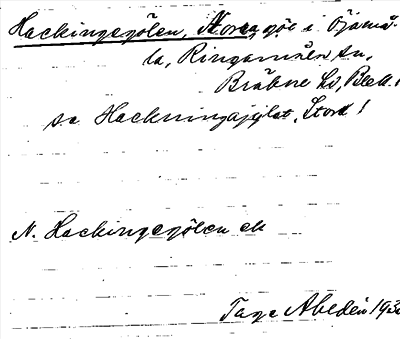 Hackingegölen, Stora göl i Öjamå-
la, Ringamåla sn,
Bräkne hd, Blek.
se Hackningajylet, Stora!
N. Hackingegölen ek
Tage Ahldén 193